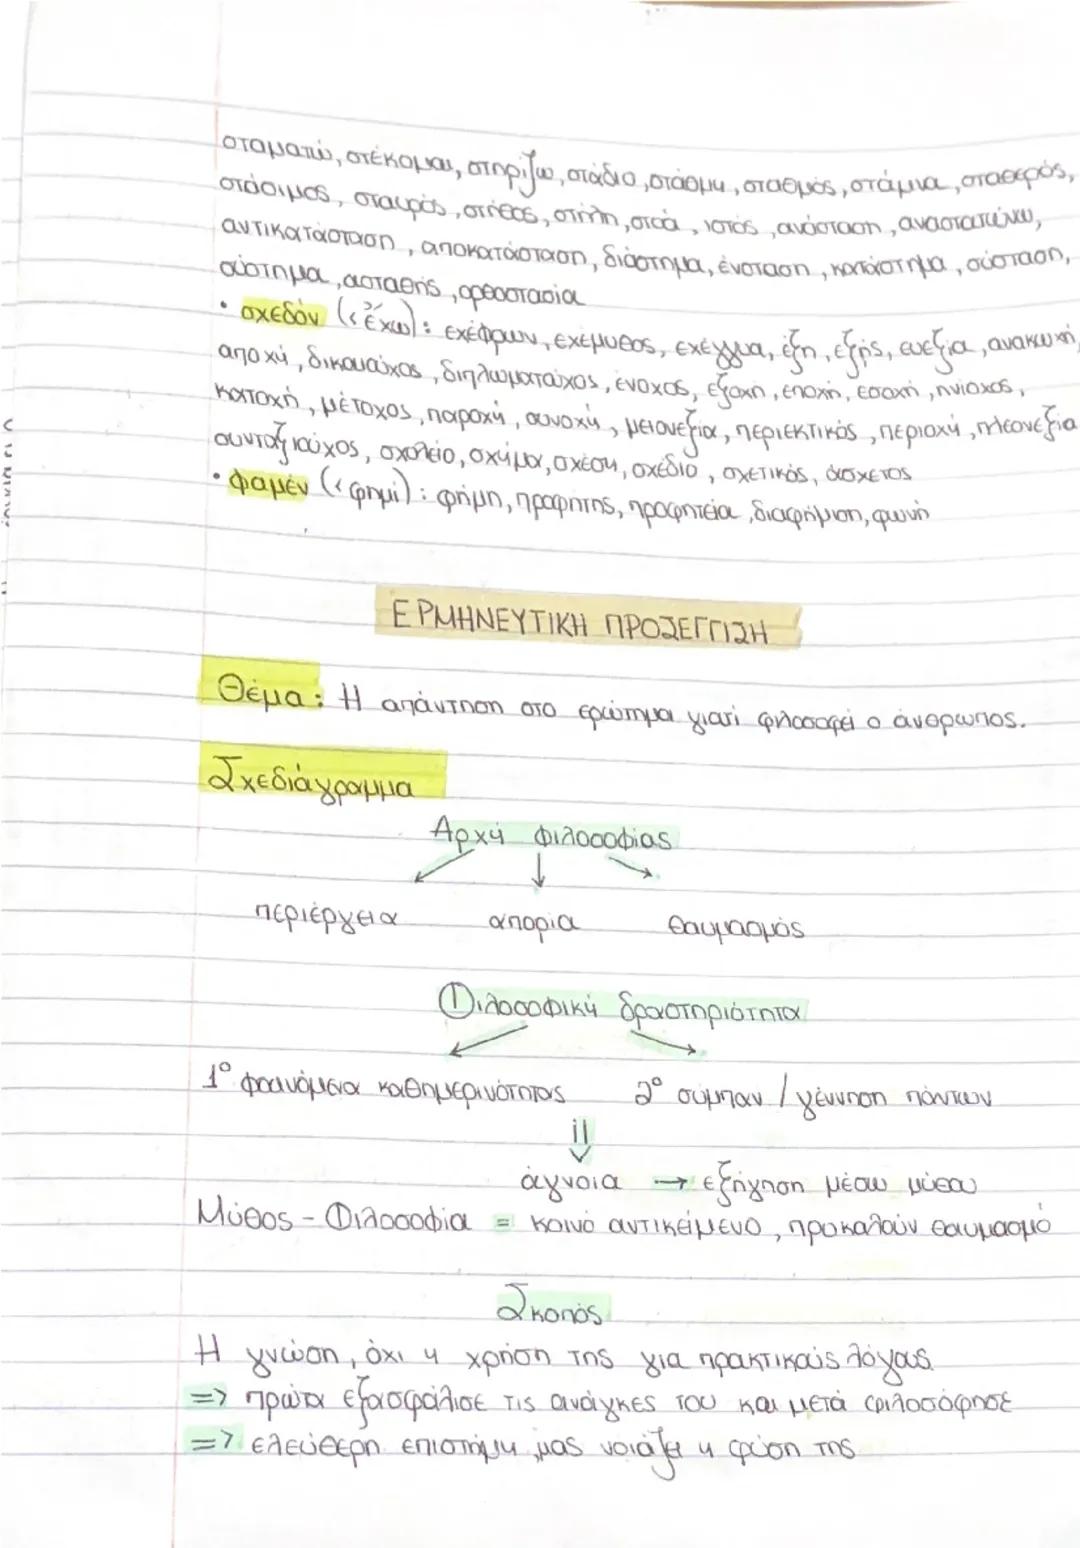 σταματώ, στέκομαι, στηρίζω, στάδιο, στάθμη, σταθμός, στάμνα, σταθερός,
στάσιμος, σταυρός, στήθος, στήλη, στοά, ιστός, ανάσταση, αναστατώνω,
αντικατάσταση, αποκατάσταση, διάστημα, ένσταση, κατάστημα, σύσταση,
σύστημα, ασταθής, ορθοστασία
• σχεδόν (< ἔχω): εχέφρων, εχέμυθος, εχέγγυα, έξη, εξής, ευεξία, ανακωχή,
αποχή, δικαιούχος, διπλωματούχος, ένοχος, εξοχή, εποχή, εσοχή, ηνίοχος,
κατοχή, μέτοχος, παροχή, συνοχή, μειονεξία, περιεκτικός, περιοχή, πλεονεξία
συνταξιούχος, σχολείο, σχήμα, σχέση, σχέδιο, σχετικός, άσχετος
• φαμέν (< φημί): φήμη, προφήτης, προφητεία, διαφήμιση, φωνή
ΕΡΜΗΝΕΥΤΙΚΗ ΠΡΟΣΕΓΓΙΣΗ
Θέμα: Η απάντηση στο ερώτημα γιατί φιλοσοφεί ο άνθρωπος.
Σχεδιάγραμμα
Αρχή φιλοσοφίας
περιέργεια απορία θαυμασμός
Φιλοσοφική δραστηριότητα
1° φαινόμενα καθημερινότητας 2° σύμπαν / γέννηση πάντων
άγνοια → εξήγηση μέσω μύθου
Μύθος - Φιλοσοφία = κοινό αντικείμενο, προκαλούν θαυμασμό
Σκοπός
Η γνώση, όχι η χρήση της για πρακτικούς λόγους
=> πρώτα εξασφάλισε τις ανάγκες του και μετά φιλοσόφησε
=> ελεύθερη επιστήμη, μας νοιάζει η φύση της